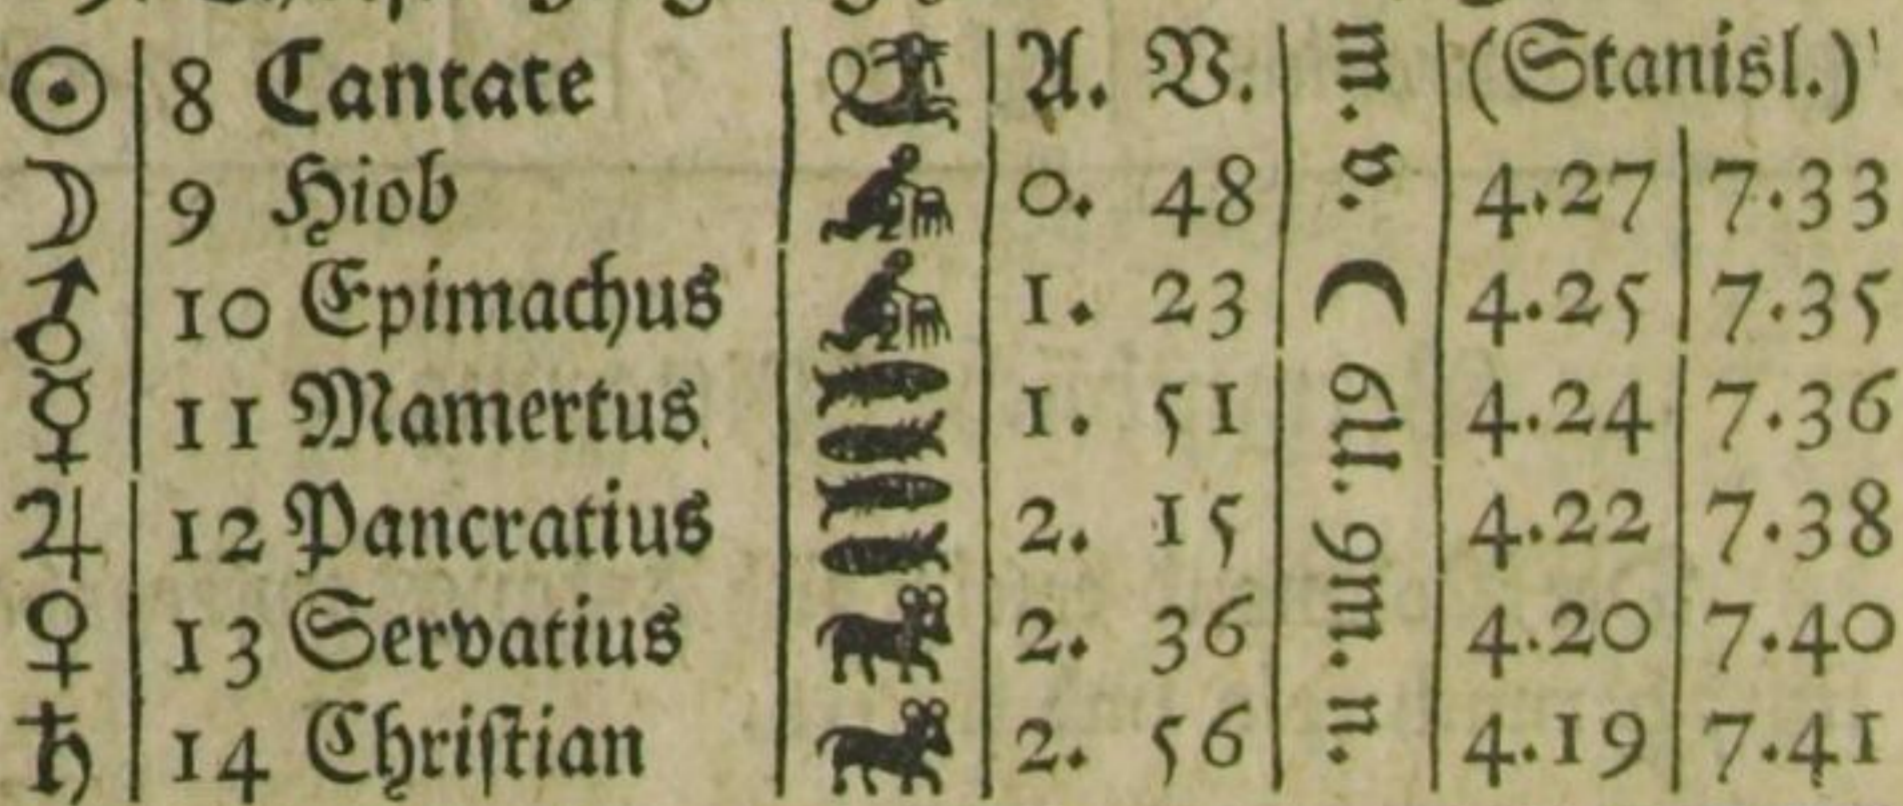 ☉ 8 Cantate A. V. (Stanisl.)
☽ 9 Hiob 0. 48 4.27 7.33
♂ 10 Epimachus 1. 23 4.25 7.35
☿ 11 Mamertus. 1. 51 4.24 7.36
♃ 12 Pancratius 2. 15 4.22 7.38
♀ 13 Servatius 2. 36 4.20 7.40
♄ 14 Chriſtian 2. 56 4.19 7.41
m. v. ☾ 6U. 9m. n.